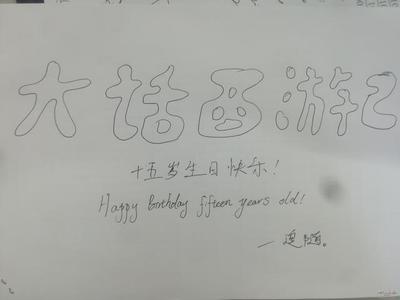 大话西游记
十五岁生日快乐!
Happy Birthday fifteen years old!